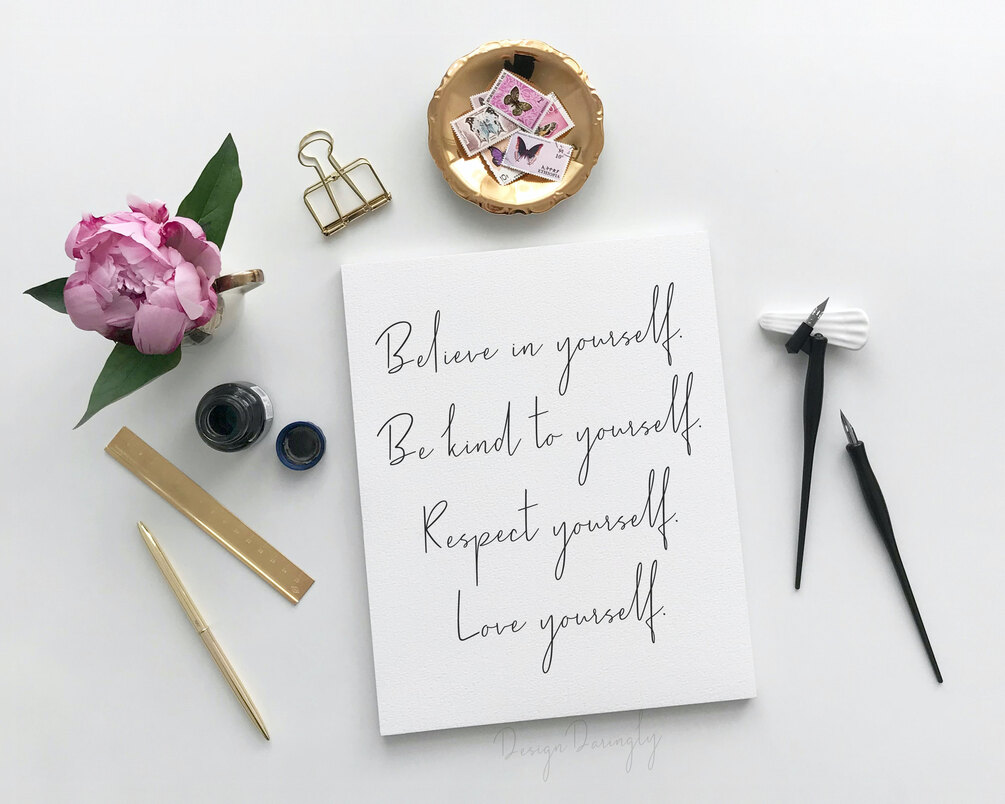 ETHIOPIA
Believe in yourself.
Be kind to yourself.
Respect yourself.
Love yourself.
Design Daringly